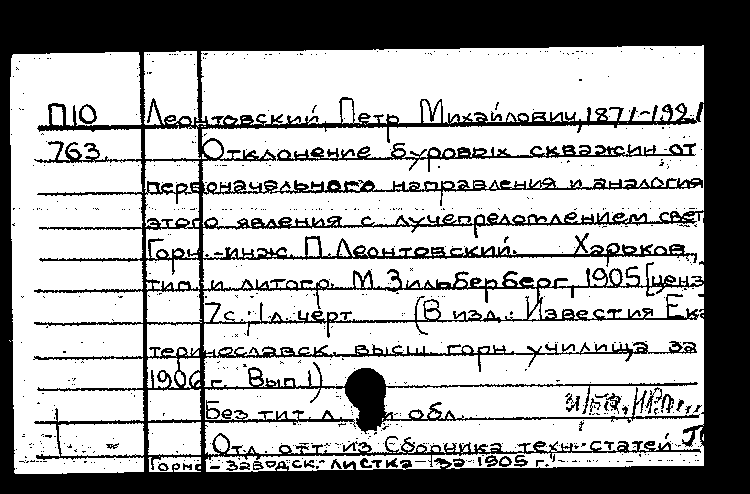 П10 Леонтовский, Петр Михайлович, 1871-1921
763. Отклонение буровых скважин от
первоначального направления и аналогия
этого явления с лучепреломлением свет
Горн.-инж. П. Леонтовский. Харьков,
тип. и литогр. М. Зильберберг, 1905 [ценз
7с.; 1л. черт. (В изд.: Известия Ека
теринославск. высш. горн. училища за
1906 г. Вып. 1)
Без тит. л. и обл.
Отд. отт. из Сборника техн. статей
Горно-заводск. листка за 1905 г.